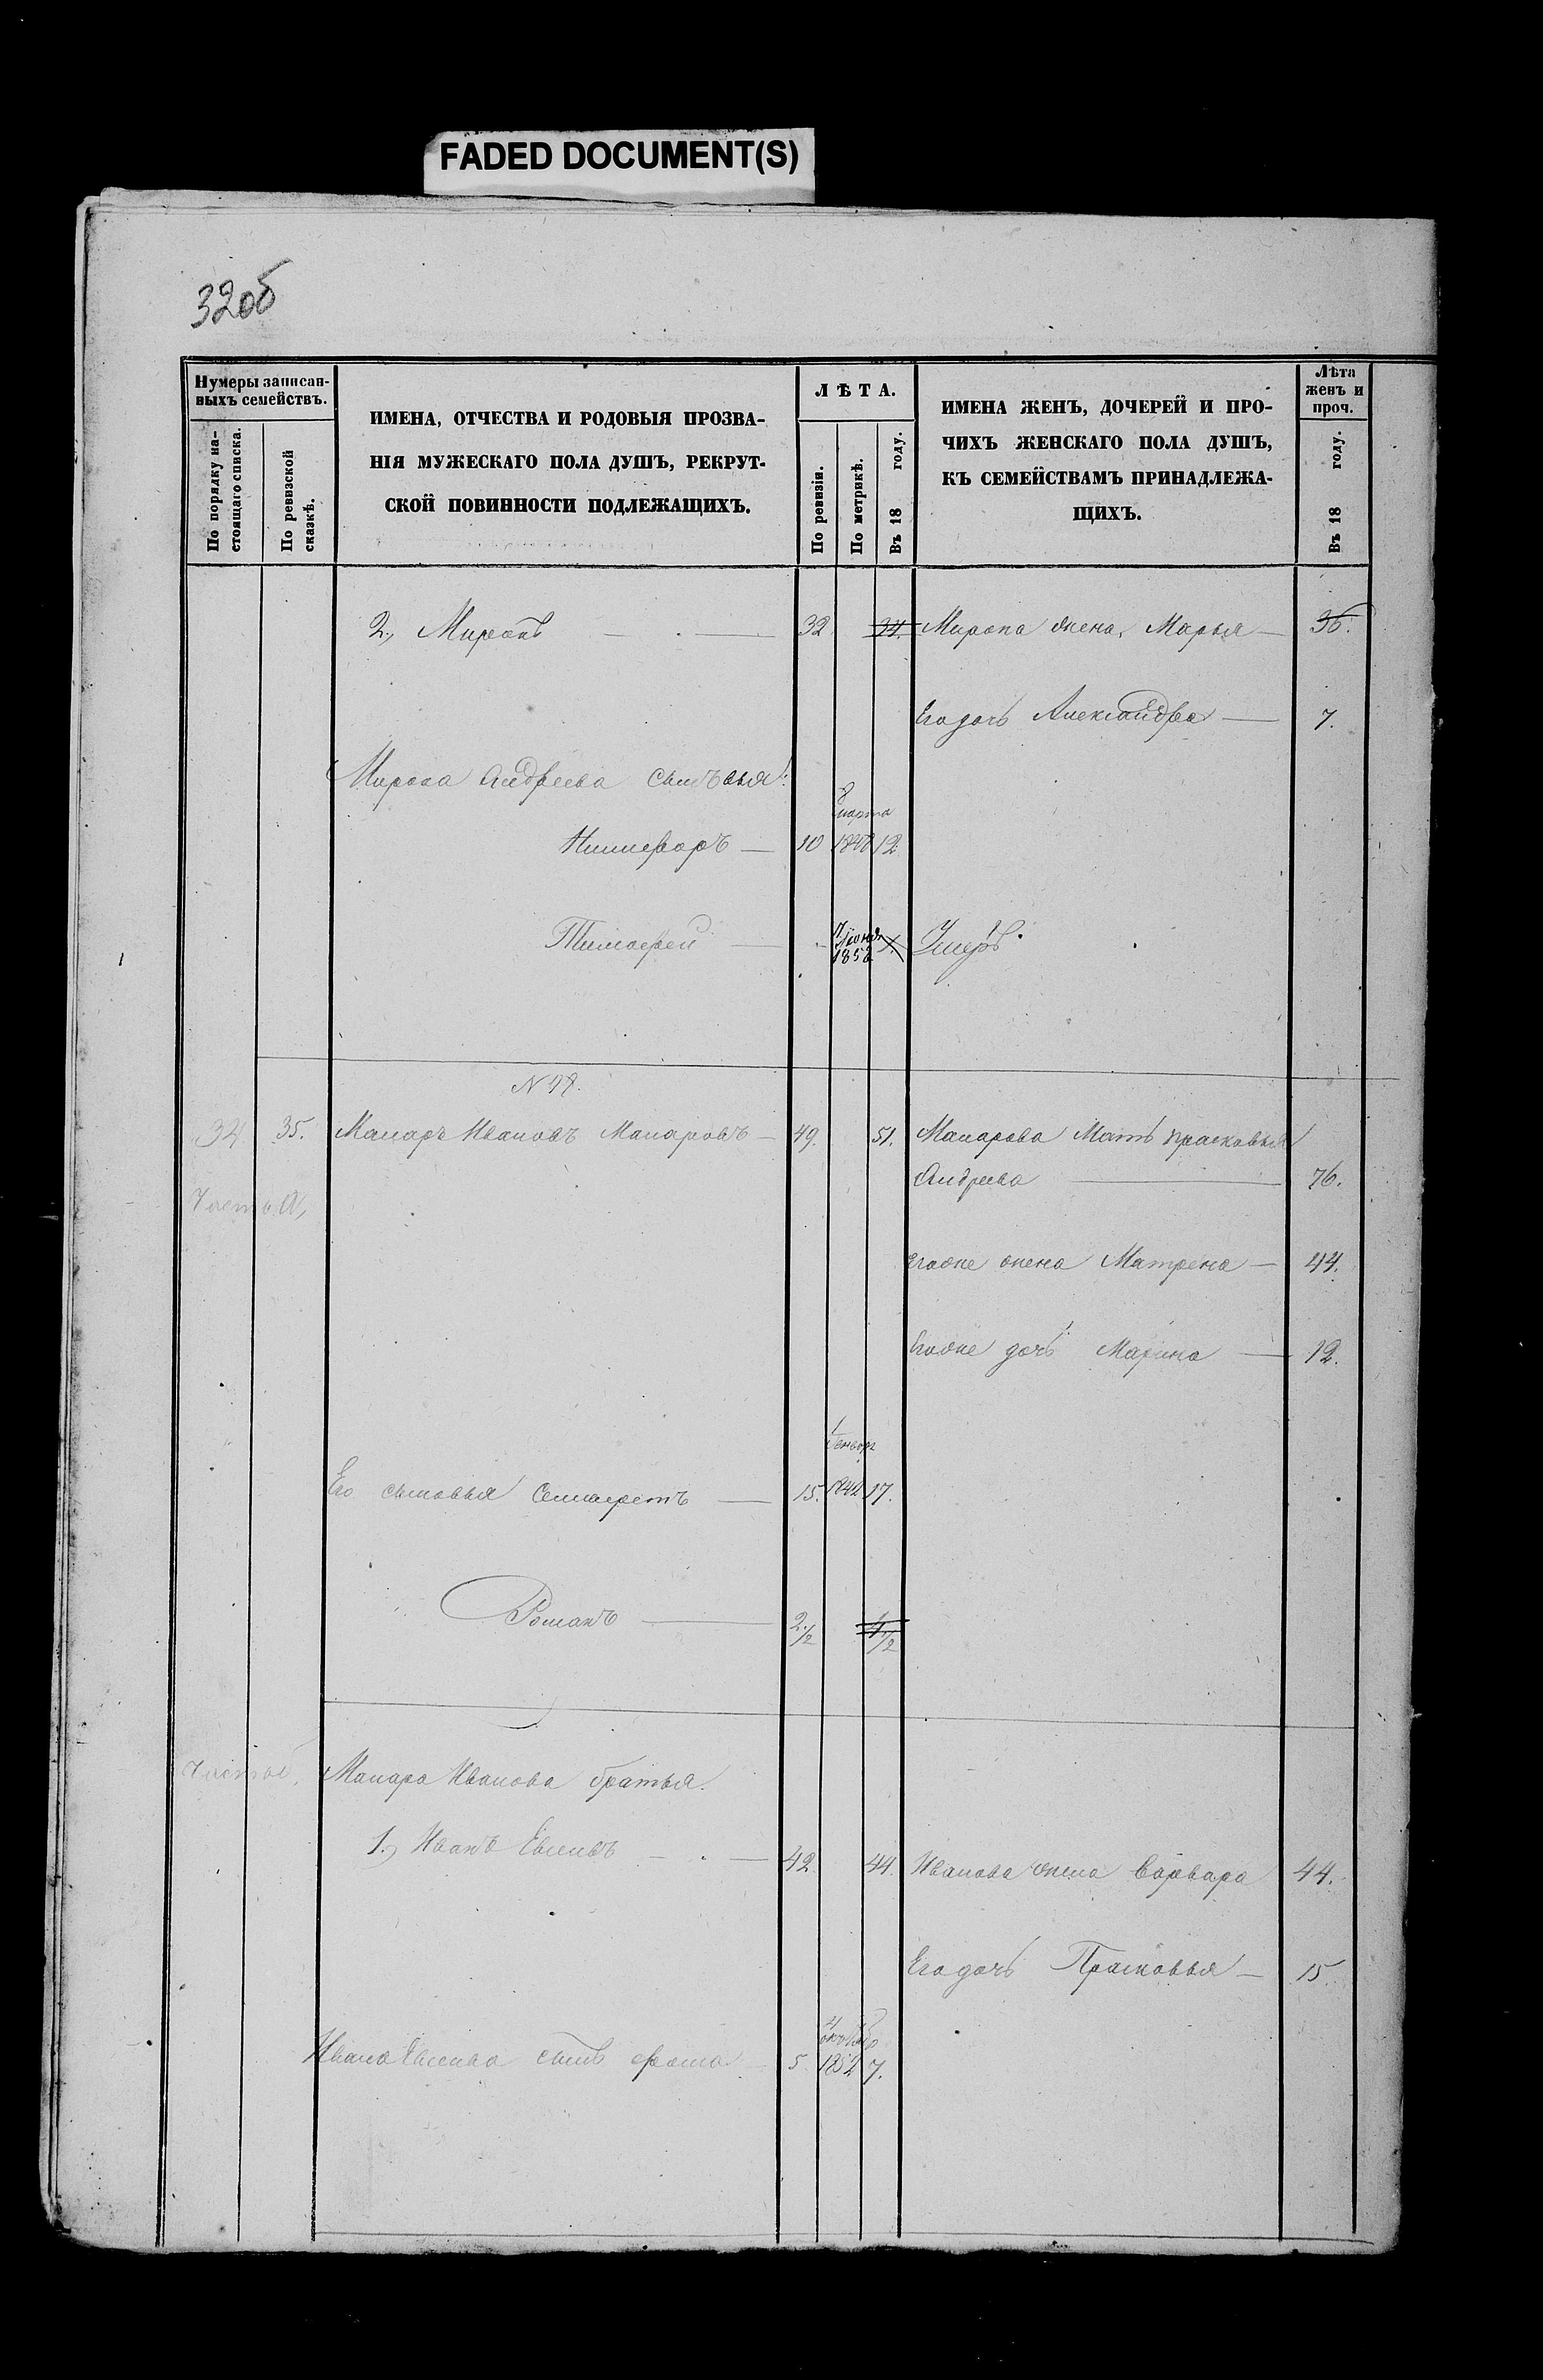 FADED DOCUMENT(S)
320б
Нумеры записан-
ныхъ семействъ.
По порядку на-
стоящаго списка.
По ревизской
сказкѣ.
ИМЕНА, ОТЧЕСТВА И РОДОВЫЯ ПРОЗВА-
НІЯ МУЖЕСКАГО ПОЛА ДУШЪ, РЕКРУТ-
СКОЙ ПОВИННОСТИ ПОДЛЕЖАЩИХЪ.
ЛѢТА.
По ревизіи.
По метрикѣ.
Въ 18 году.
ИМЕНА ЖЕНЪ, ДОЧЕРЕЙ И ПРО-
ЧИХЪ ЖЕНСКАГО ПОЛА ДУШЪ,
КЪ СЕМЕЙСТВАМЪ ПРИНАДЛЕЖА-
ЩИХЪ.
Лѣта
женъ и
проч.
Въ 18 году.
2, Миронъ 32 34. Мирона жена, Марья 36.
Его дочь Александра 7.
Мирона Андреева сыновья:
8 марта
Никифоръ 10 1848 12
Тимофей Іюня 1858 Умеръ.
34 35. Макаръ Ивановъ Макаровъ 49. 51. Макарова Мать Прасковья
Андреева 76.
Часть А,
Егоже жена Матрена 44.
Егоже дочь Марина 12.
1 Генвар
Его сыновья 15. 1842 17.
Романъ 2 1/2 4 1/2
Макара Иванова братья.
1, Иванъ 42 44 Иванова жена Варвара 44.
Его дочь Прасковья 15.
Ивана сынъ Фома 5 1852 7.